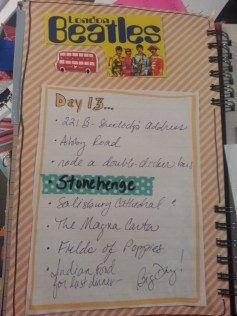 London
Beatles
Day 13...
• 221 B - Sherlock's address
• Abbey Road
• rode a double decker bus
• Stonehenge
• Salisbury Cathedral
• The Magna Carta
• Fields of Poppies
• Indian food
for last dinner -
Big Day!